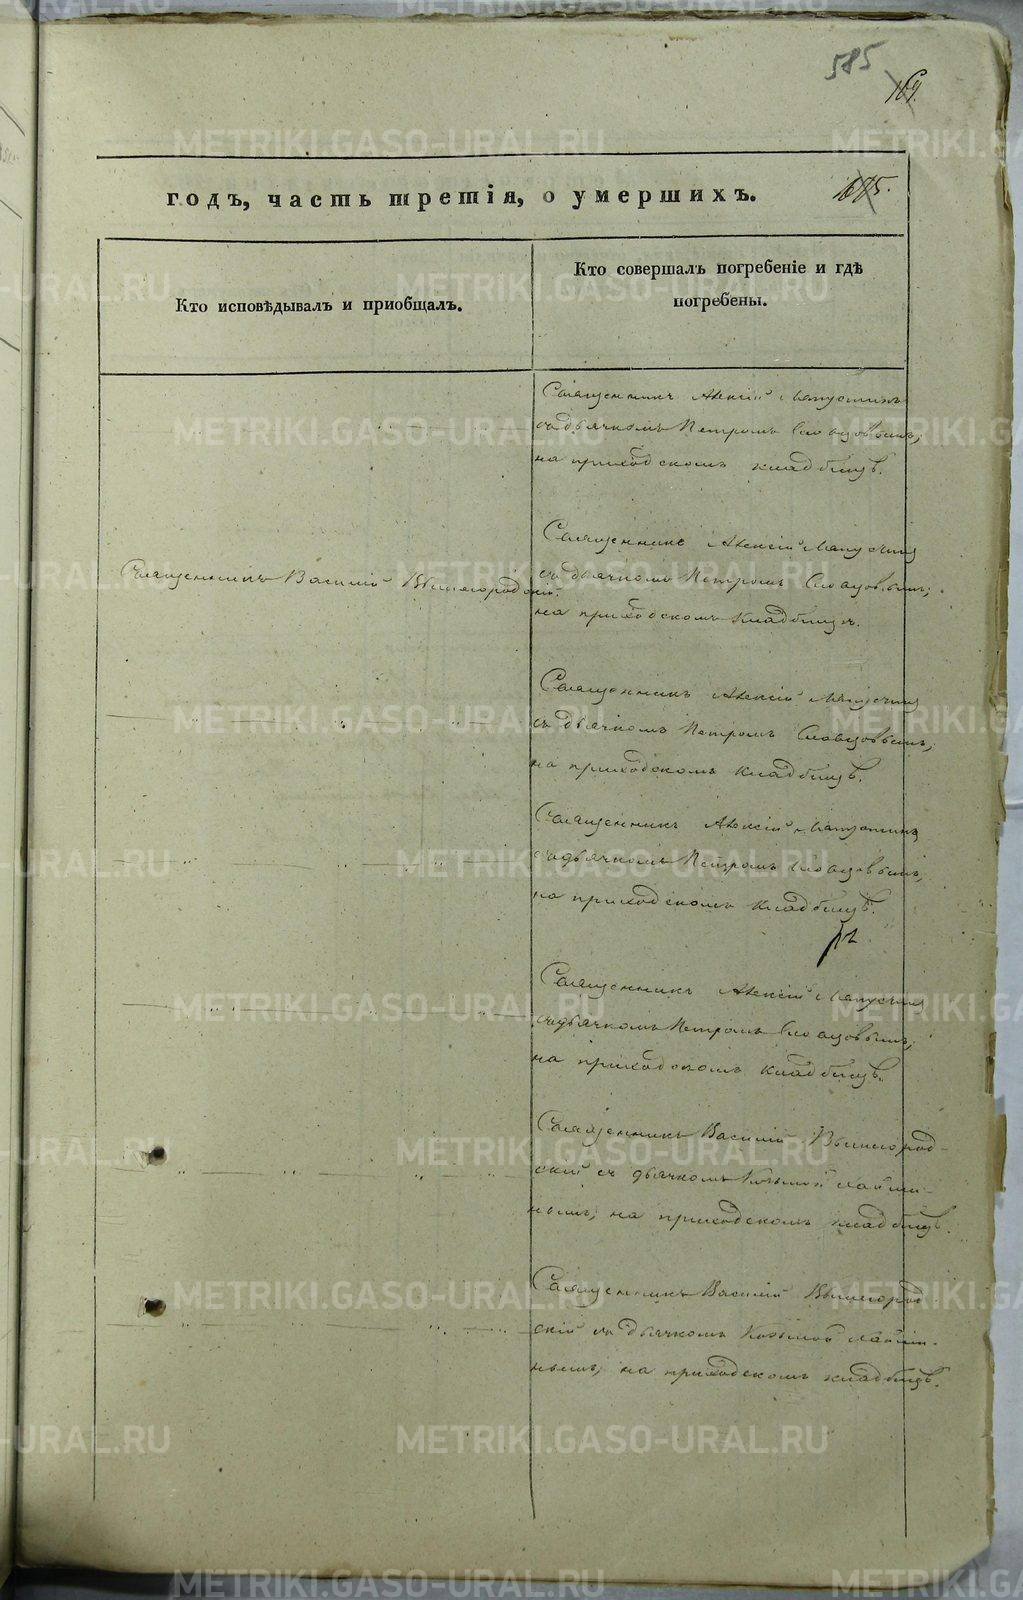 585
169.
METRIKI.GASO-URAL.RU
годъ, часть третія, о умершихъ.
Кто исповѣдывалъ и приобщалъ.
Кто совершалъ погребеніе и гдѣ
погребены.
Священникъ Алексій
съ дьячкомъ Петромъ Словцовымъ;
на приходскомъ кладбищѣ.
Священникъ Василій Вышегородскій.
Священникъ Алексій
съ дьячкомъ Петромъ Словцовымъ;
на приходскомъ кладбищѣ.
Священникъ Алексій
съ дьячкомъ Петромъ Словцовымъ;
на приходскомъ кладбищѣ.
Священникъ Алексій
съ дьячкомъ Петромъ Словцовымъ,
на приходскомъ кладбищѣ.
Священникъ Алексій
съ дьячкомъ Петромъ Словцовымъ;
на приходскомъ кладбищѣ.
Священникъ Василій Вышегород-
скій съ дьячкомъ
на приходскомъ кладбищѣ.
Священникъ Василій Вышегород
скій съ дьячкомъ Козьмой
на приходскомъ кладбищѣ.